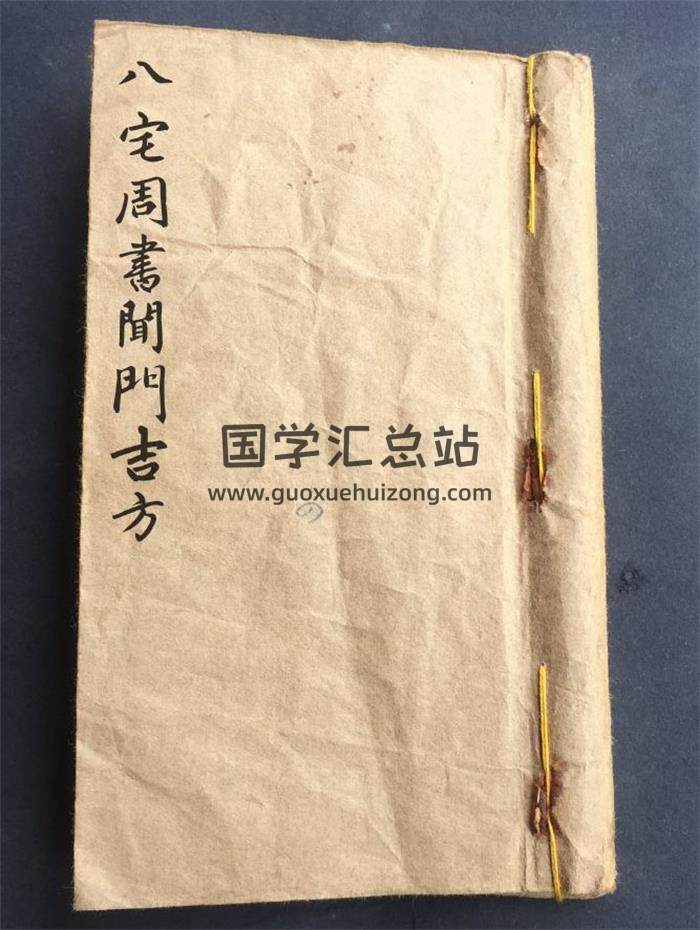 八宅周書聞門吉方
国学汇总站
www.guoxuehuizong.com